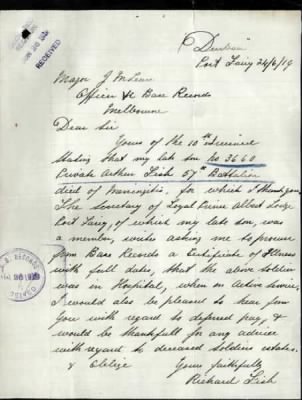 "Durban"
Port Fairy 24/6/19
Major J McLean
Officer i/c Base Records
Melbourne
Dear Sir
Yours of the 10th received
stating that my late son No 3660
Private Arthur Fish 57th Battalion
died of Meningitis, for which I thank you
The Secretary of Loyal Prince Albert Lodge
Port Fairy, of which my late son, was
a member, writes asking me to procure
from Base Records a Certificate of Illness
with full dates, that the above soldier
was in Hospital, when on Active Service,
I would also be pleased to hear from
you with regard to deferred pay, &
would be thankfull for any advice
with regard to deceased soldiers estates.
& Oblige
Yours faithfully
Richard Fish
RECEIVED